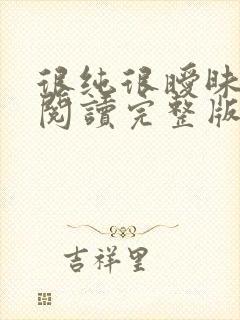 很纯很曖昧
閱讀完整版
吉祥里